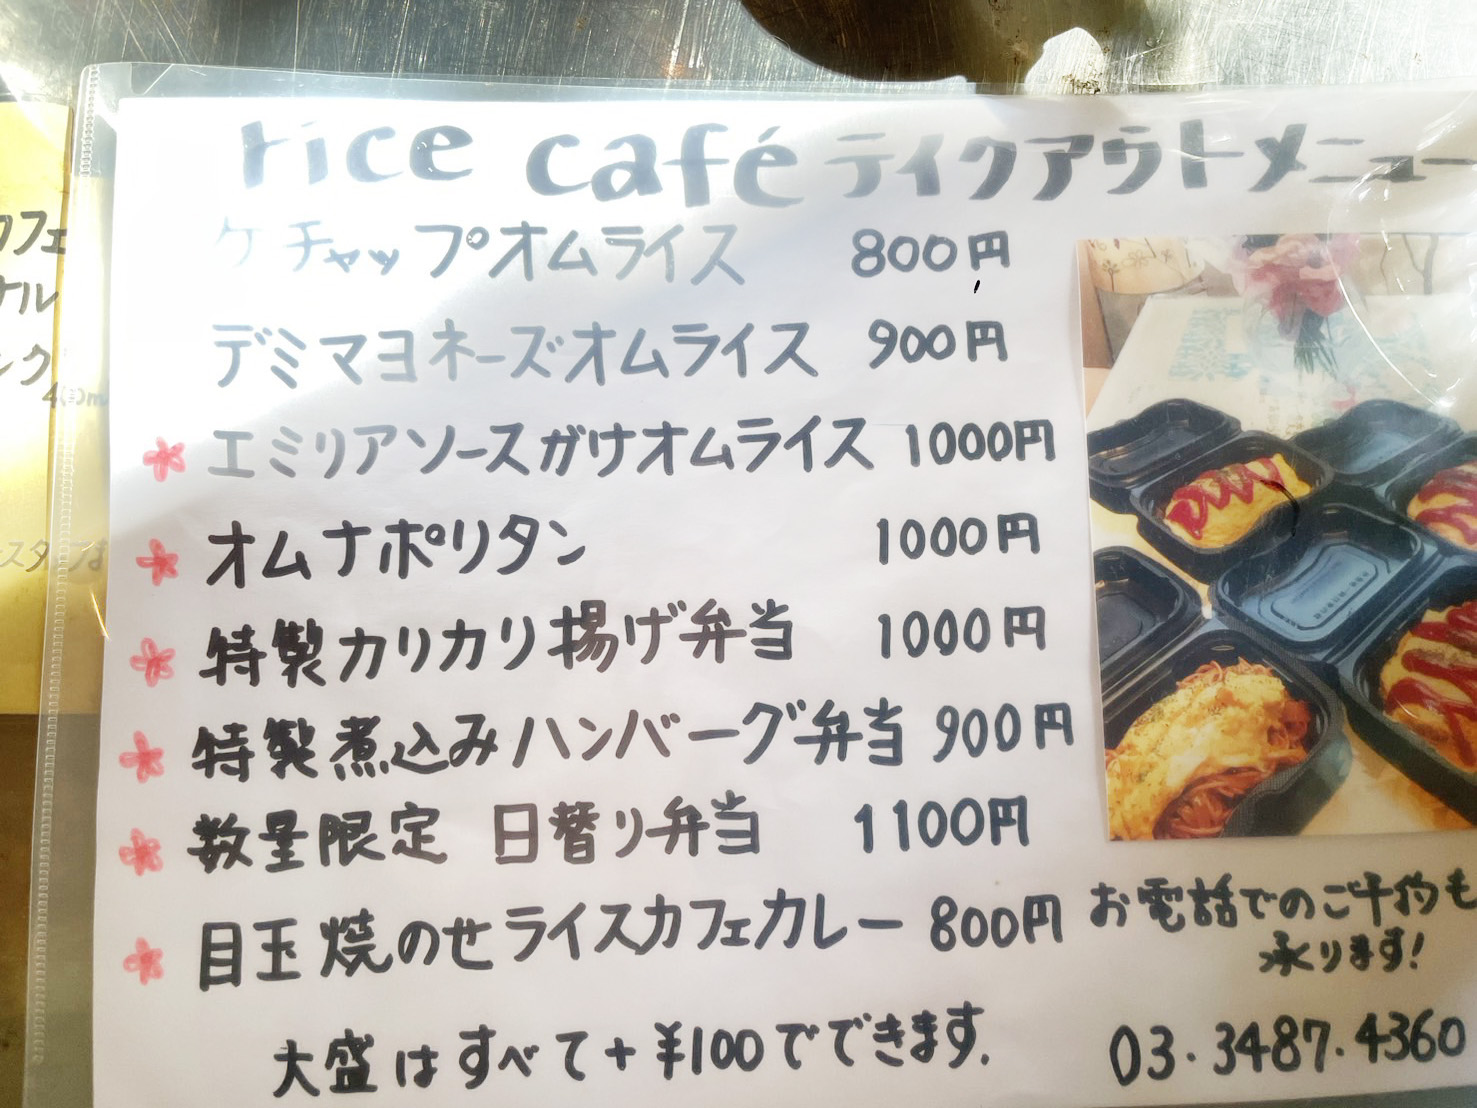 rice café テイクアウトメニュー
ケチャップオムライス 800円
デミマヨネーズオムライス 900円
エミリアソースがけオムライス 1000円
オムナポリタン 1000円
特製カリカリ揚げ弁当 1000円
特製煮込みハンバーグ弁当 900円
数量限定 日替り弁当 1100円
目玉焼のせライスカフェカレー 800円
大盛はすべて+¥100でできます.
お電話でのご予約も
承ります!
03.3487.4360
カフェ
ナル
ンク